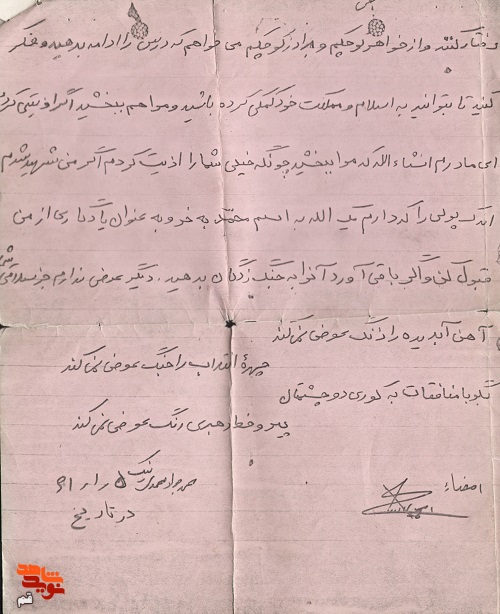 رفتار کنند و از خواهر کوچکم و برادر کوچکم می خواهم که درس را ادامه بدهید و فکر
کنید تا بتوانید به اسلام و مملکت خود کمکی کرده باشید و مرا هم ببخشید اگر اذیتی کردم
ای مادرم انشاء الله که مرا ببخشید چونکه خیلی شما را اذیت کردم اگر من شهید شدم
اندک پولی را که دارم یک الله به اسم محمد به خر و به عنوان یادگاری از من
قبول کن و اگر باقی آورد آنرا به جنگ زدگان بدهید. دیگر عرضی ندارم جز سلامتی
آهن آبدیده را زنگ عوض نمی کند
چهرهٔ انقلاب را جنگ عوض نمی کند
بگو با منافقات به کوری دو چشمان
پیرو خط رهبری رنگ عوض نمی کند
امضاء
محمد جواد محمدی نیک
در تاریخ
نوید شاهد
قم